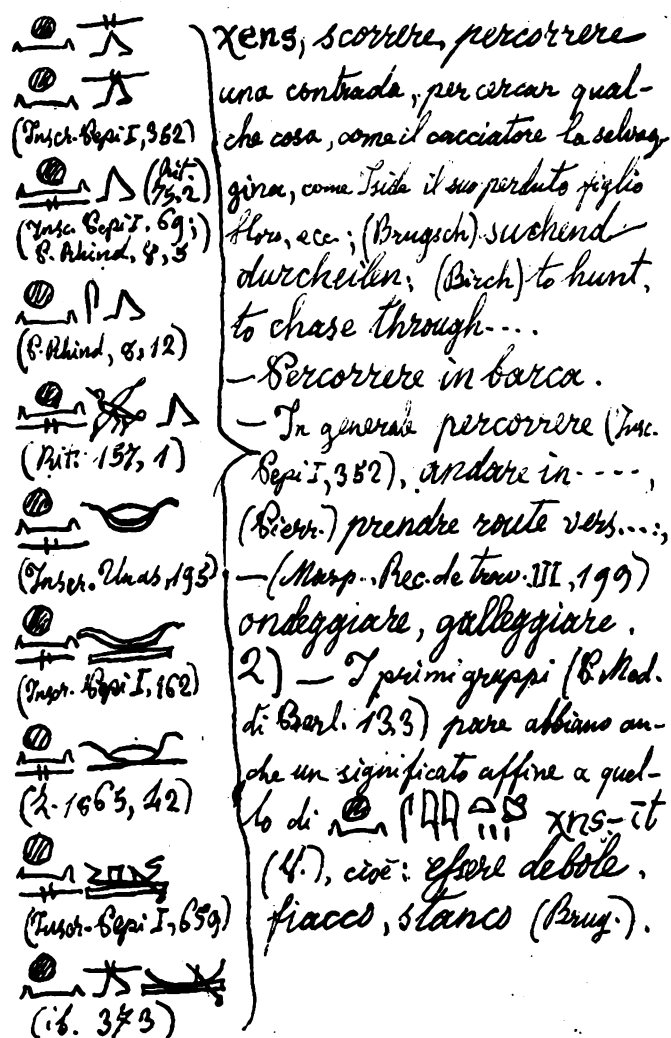 (Inscr. Pepi I, 362)
(Rit. 75,2)
(Insc. Pepi I, 69;
P. Rhind, 8, 5
(P. Rhind, 8, 12)
(Rit. 157, 1)
(Inscr. Unas, 195)
(Inscr. Pepi I, 162)
(Z. 1865, 42)
(Inscr. Pepi I, 659)
(ib. 373)
χens, scorrere, percorrere
una contrada, per cercar qual-
che cosa, come il cacciatore la selvag-
gina, come Iside il suo perduto figlio
Horo, ecc.; (Brugsch) suchend
durcheilen; (Birch) to hunt,
to chase through....
— Percorrere in barca.
— In generale percorrere (Insc.
Pepi I, 352), andare in....,
(Pierr.) prendre route vers...;
— (Masp., Rec. de trav. III, 199)
ondeggiare, galleggiare.
2) — I primi gruppi (P. Med.
di Berl. 13,3) pare abbiano an-
che un significato affine a quel-
lo di 𓐍𓈖𓋴𓇌𓏏𓏥 χns-it
(V.), cioè: essere debole,
fiacco, stanco (Brug.).